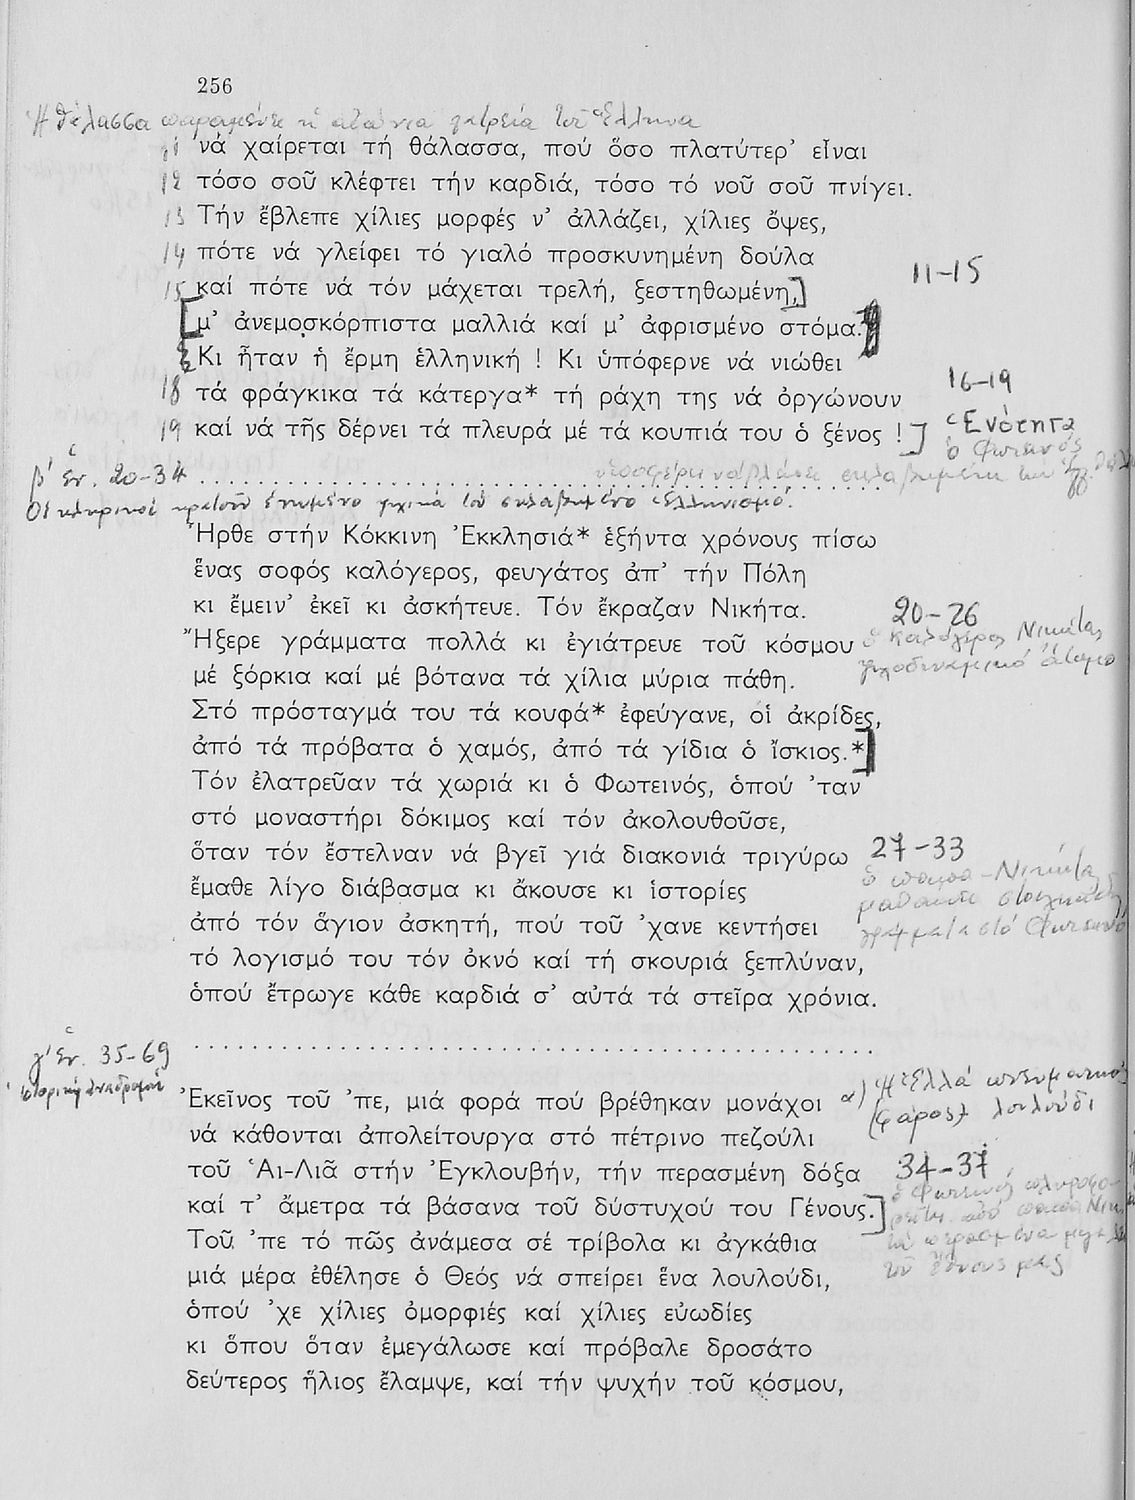 256
Ἡ θάλασσα παραμένει ἡ αἰώνια λατρεία τοῦ Ἕλληνα
11 νά χαίρεται τή θάλασσα, πού ὅσο πλατύτερ' εἶναι
12 τόσο σοῦ κλέφτει τήν καρδιά, τόσο τό νοῦ σοῦ πνίγει.
13 Τήν ἔβλεπε χίλιες μορφές ν' ἀλλάζει, χίλιες ὄψες,
14 πότε νά γλείφει τό γιαλό προσκυνημένη δούλα
11-15
15 καί πότε νά τόν μάχεται τρελή, ξεστηθωμένη,]
[μ' ἀνεμοσκόρπιστα μαλλιά καί μ' ἀφρισμένο στόμα.
Κι ἦταν ἡ ἔρμη ἑλληνική ! Κι ὑπόφερνε νά νιώθει
16-19
18 τά φράγκικα τά κάτεργα* τή ράχη της νά ὀργώνουν
Ἑνότητα
19 καί νά τῆς δέρνει τά πλευρά μέ τά κουπιά του ὁ ξένος !]
ὁ Φωτεινός
β' Ἑν. 20-34
Οἱ κληρικοί κρατοῦν ψυχικά τόν σκλαβωμένο Ἑλληνισμό.
Ἦρθε στήν Κόκκινη Ἐκκλησιά* ἑξήντα χρόνους πίσω
ἕνας σοφός καλόγερος, φευγάτος ἀπ' τήν Πόλη
κι ἔμειν' ἐκεῖ κι ἀσκήτευε. Τόν ἔκραζαν Νικήτα.
20-26
Ἤξερε γράμματα πολλά κι ἐγιάτρευε τοῦ κόσμου
ὁ καλόγερος Νικήτας
ψυχοδυναμικό ἄτομο
μέ ξόρκια καί μέ βότανα τά χίλια μύρια πάθη.
Στό πρόσταγμά του τά κουφά* ἐφεύγανε, οἱ ἀκρίδες,
ἀπό τά πρόβατα ὁ χαμός, ἀπό τά γίδια ὁ ἴσκιος.*]
Τόν ἐλατρεῦαν τά χωριά κι ὁ Φωτεινός, ὁπού 'ταν
στό μοναστήρι δόκιμος καί τόν ἀκολουθοῦσε,
ὅταν τόν ἔστελναν νά βγεῖ γιά διακονιά τριγύρω
27-33
ἔμαθε λίγο διάβασμα κι ἄκουσε κι ἱστορίες
ὁ παπα-Νικήτας
μαθαίνει στοιχειώδη
γράμματα στό Φωτεινό
ἀπό τόν ἅγιον ἀσκητή, πού τοῦ 'χανε κεντήσει
τό λογισμό του τόν ὀκνό καί τή σκουριά ξεπλύναν,
ὁπού ἔτρωγε κάθε καρδιά σ' αὐτά τά στεῖρα χρόνια.
γ' Ἑν. 35-69
ἱστορική ἀναδρομή
Ἐκεῖνος τοῦ 'πε, μιά φορά πού βρέθηκαν μονάχοι
α) Ἡ Ἑλλά πνευματικός
(φάρος) λουλούδι
νά κάθονται ἀπολείτουργα στό πέτρινο πεζούλι
τοῦ Ἁι-Λιᾶ στήν Ἐγκλουβήν, τήν περασμένη δόξα
34-37
καί τ' ἄμετρα τά βάσανα τοῦ δύστυχού του Γένους.]
ὁ Φωτεινός
ἀπό παπα Νικ
τά περασμένα
τοῦ ἔθνους μας
Τοῦ 'πε τό πῶς ἀνάμεσα σέ τρίβολα κι ἀγκάθια
μιά μέρα ἐθέλησε ὁ Θεός νά σπείρει ἕνα λουλούδι,
ὁπού 'χε χίλιες ὀμορφιές καί χίλιες εὐωδίες
κι ὅπου ὅταν ἐμεγάλωσε καί πρόβαλε δροσάτο
δεύτερος ἥλιος ἔλαμψε, καί τήν ψυχήν τοῦ κόσμου,